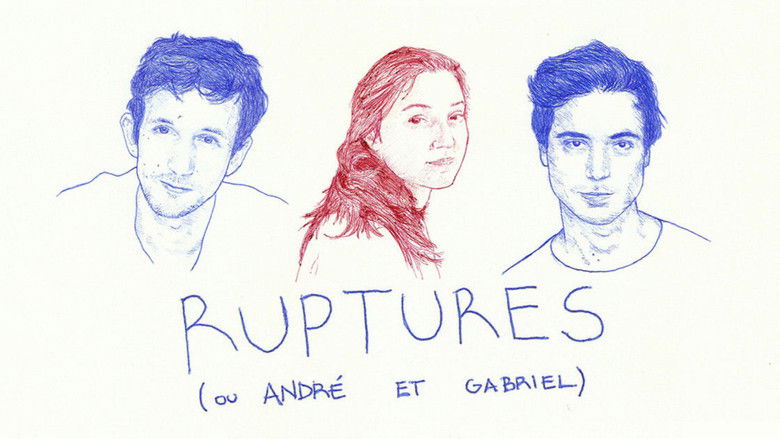 RUPTURES
(ou ANDRÉ ET GABRIEL)